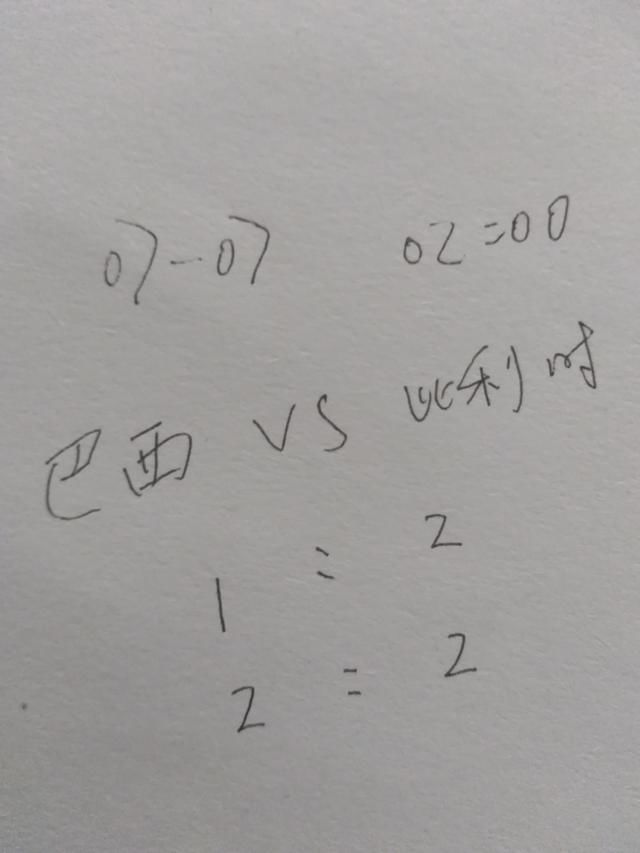 07-07 02:00
巴西 VS 比利时
1 : 2
2 : 2